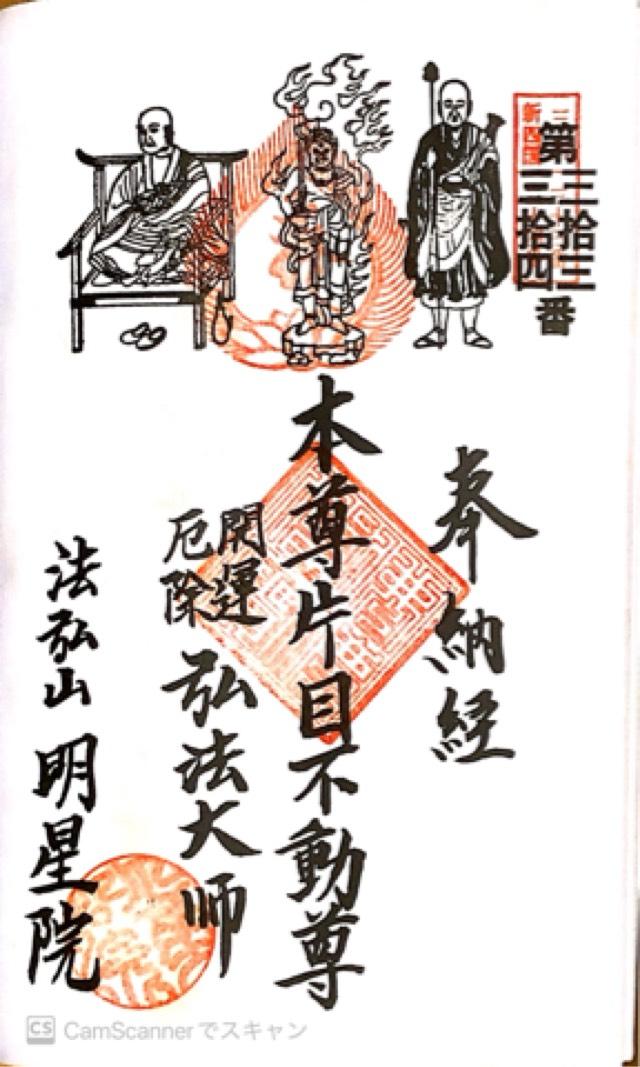 三
新四国
第三拾三
三拾四
番
奉納経
本尊片目不動尊
開運
厄除
弘法大师
法弘山 明星院
CS CamScannerでスキャン